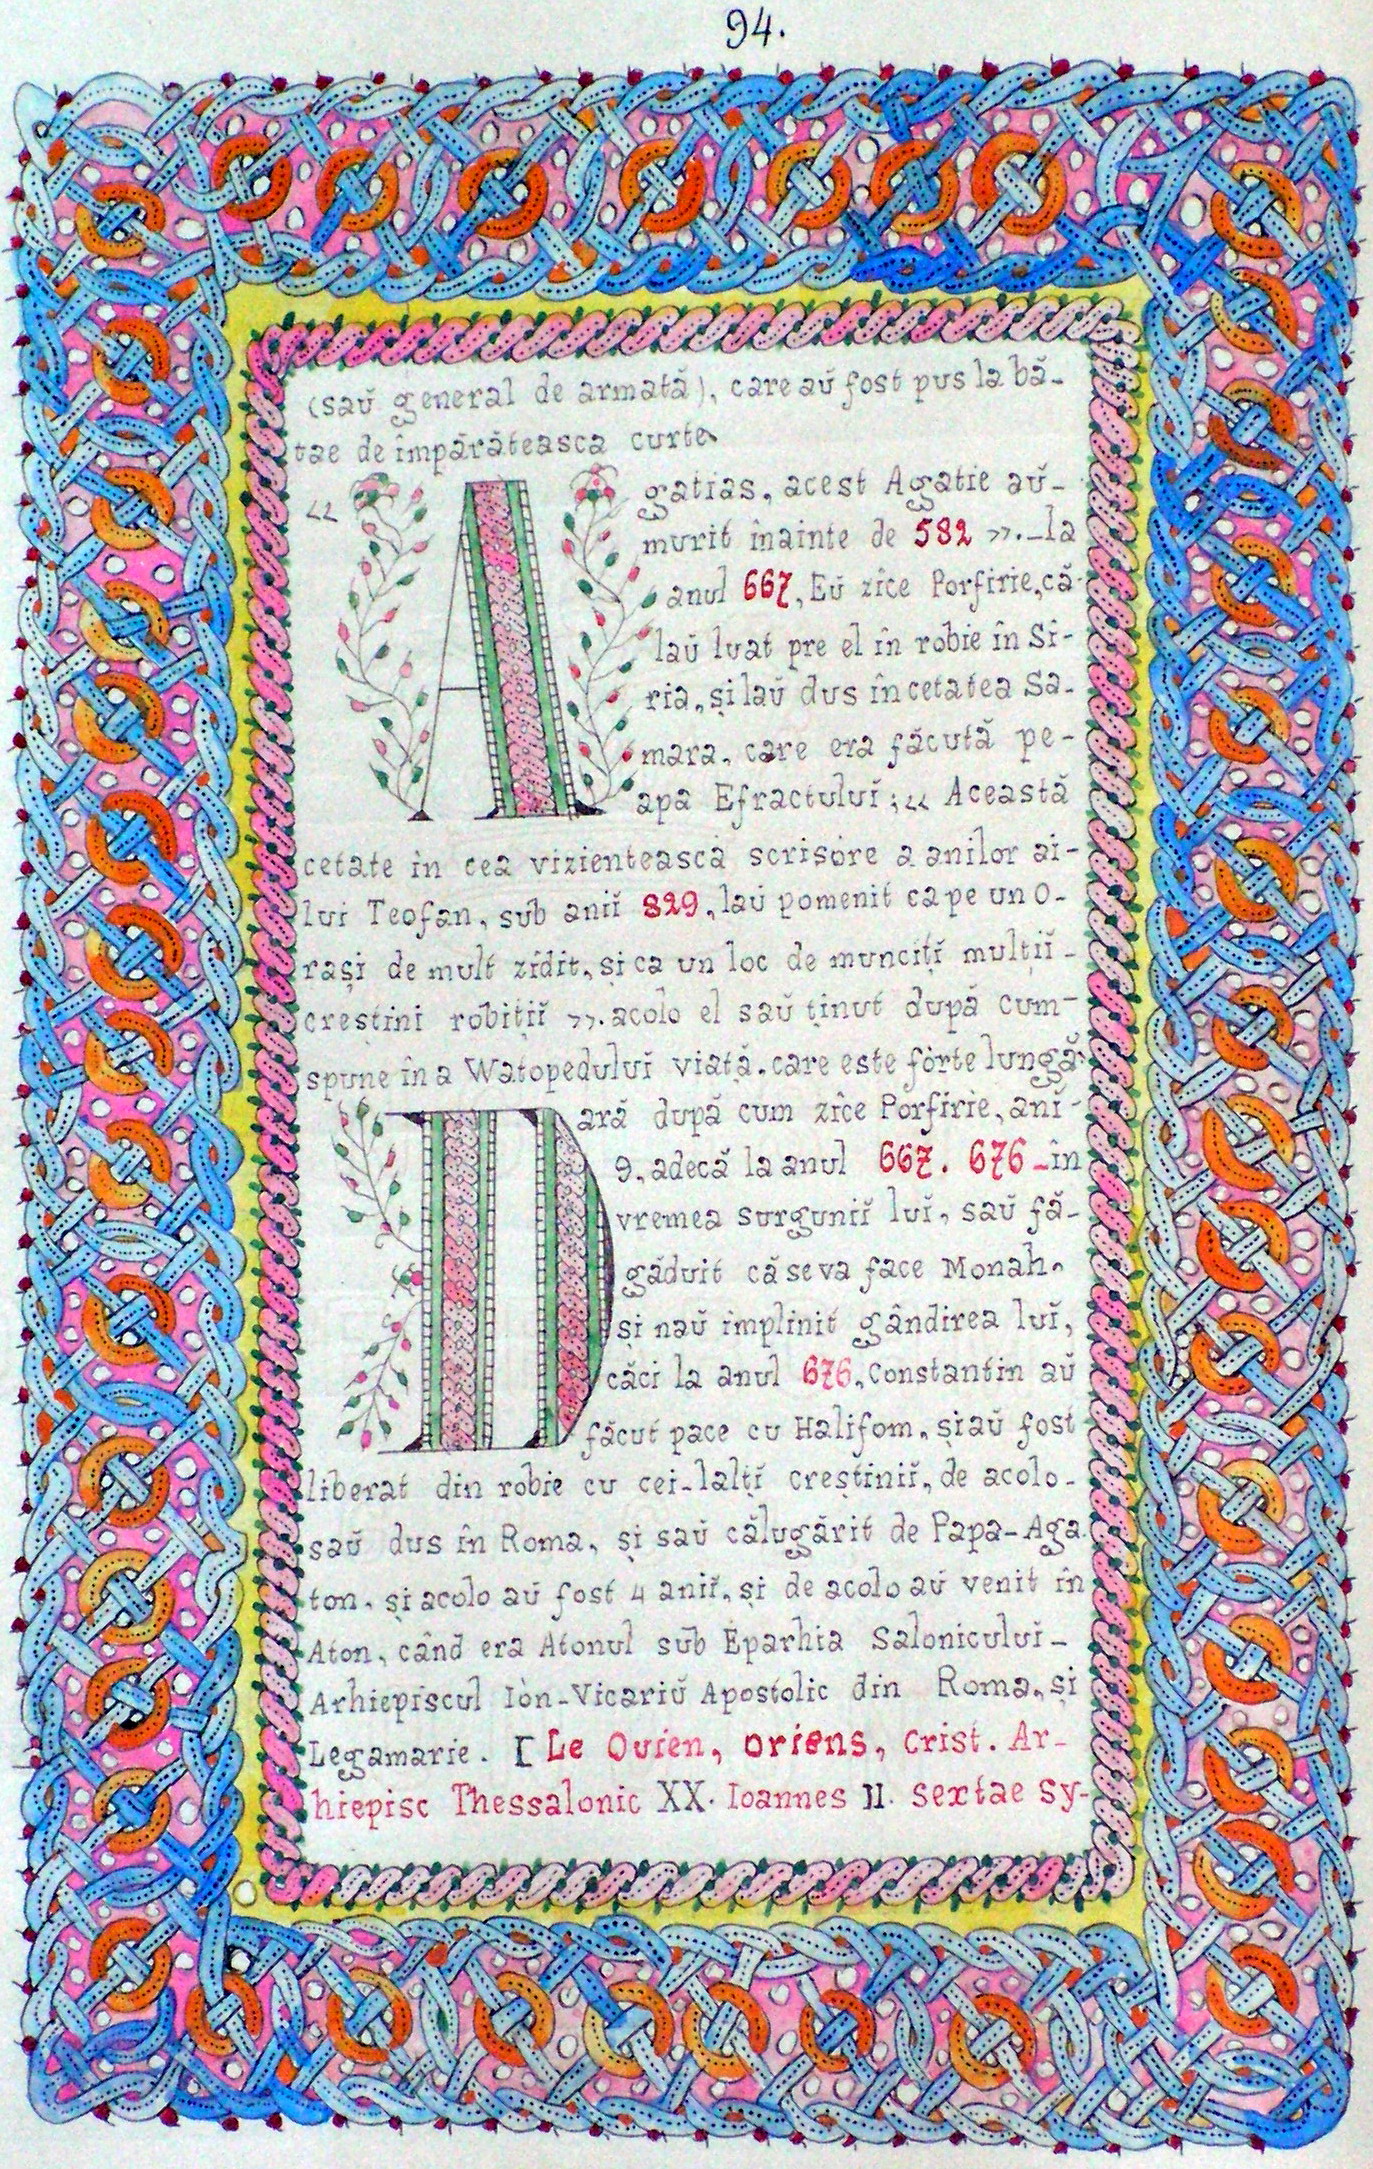 94.
(saŭ general de armată), care aŭ fost pus la bă-
tae de împărăteasca curte
« Agatias, acest Agatie aŭ-
murit înainte de 582 ».-la
anul 667, Eŭ zice Porfirie, că
laŭ luat pre el în robie în Si-
ria, și laŭ dus în cetatea Sa-
mara, care era făcută pe-
apa Efractuluĭ; « Această
cetate în cea vizientească scrisore a anilor ai-
lui Teofan, sub anii 829, laŭ pomenit ca pe un O-
rași de mult zidit, și ca un loc de munciți mulțiĭ-
creștini robițiĭ ». acolo el saŭ ținut după cum-
spune în a Watopeduluĭ viață. care este forte lungă
Dară după cum zice Porfirie, anĭ-
9, adecă la anul 667. 676-în
vremea surguniĭ luĭ, saŭ fă-
găduit că se va face Monah,
și naŭ implinit gândirea luĭ,
căci la anul 676, Constantin aŭ
făcut pace cu Halifom, și aŭ fost
liberat din robie cu cei-lalțĭ creștiniĭ, de acolo-
saŭ dus în Roma, și saŭ călugărit de Papa-Aga
ton, și acolo aŭ fost 4 aniĭ, și de acolo aŭ venit în
Aton, când era Atonul sub Eparhia Saloniculuĭ-
Arhiepiscul Iòn-Vicariŭ Apostolic din Roma, și
Legamarie. [Le Quien, oriens, Crist. Ar-
hiepisc Thessalonic XX. Ioannes II. sextae sy-